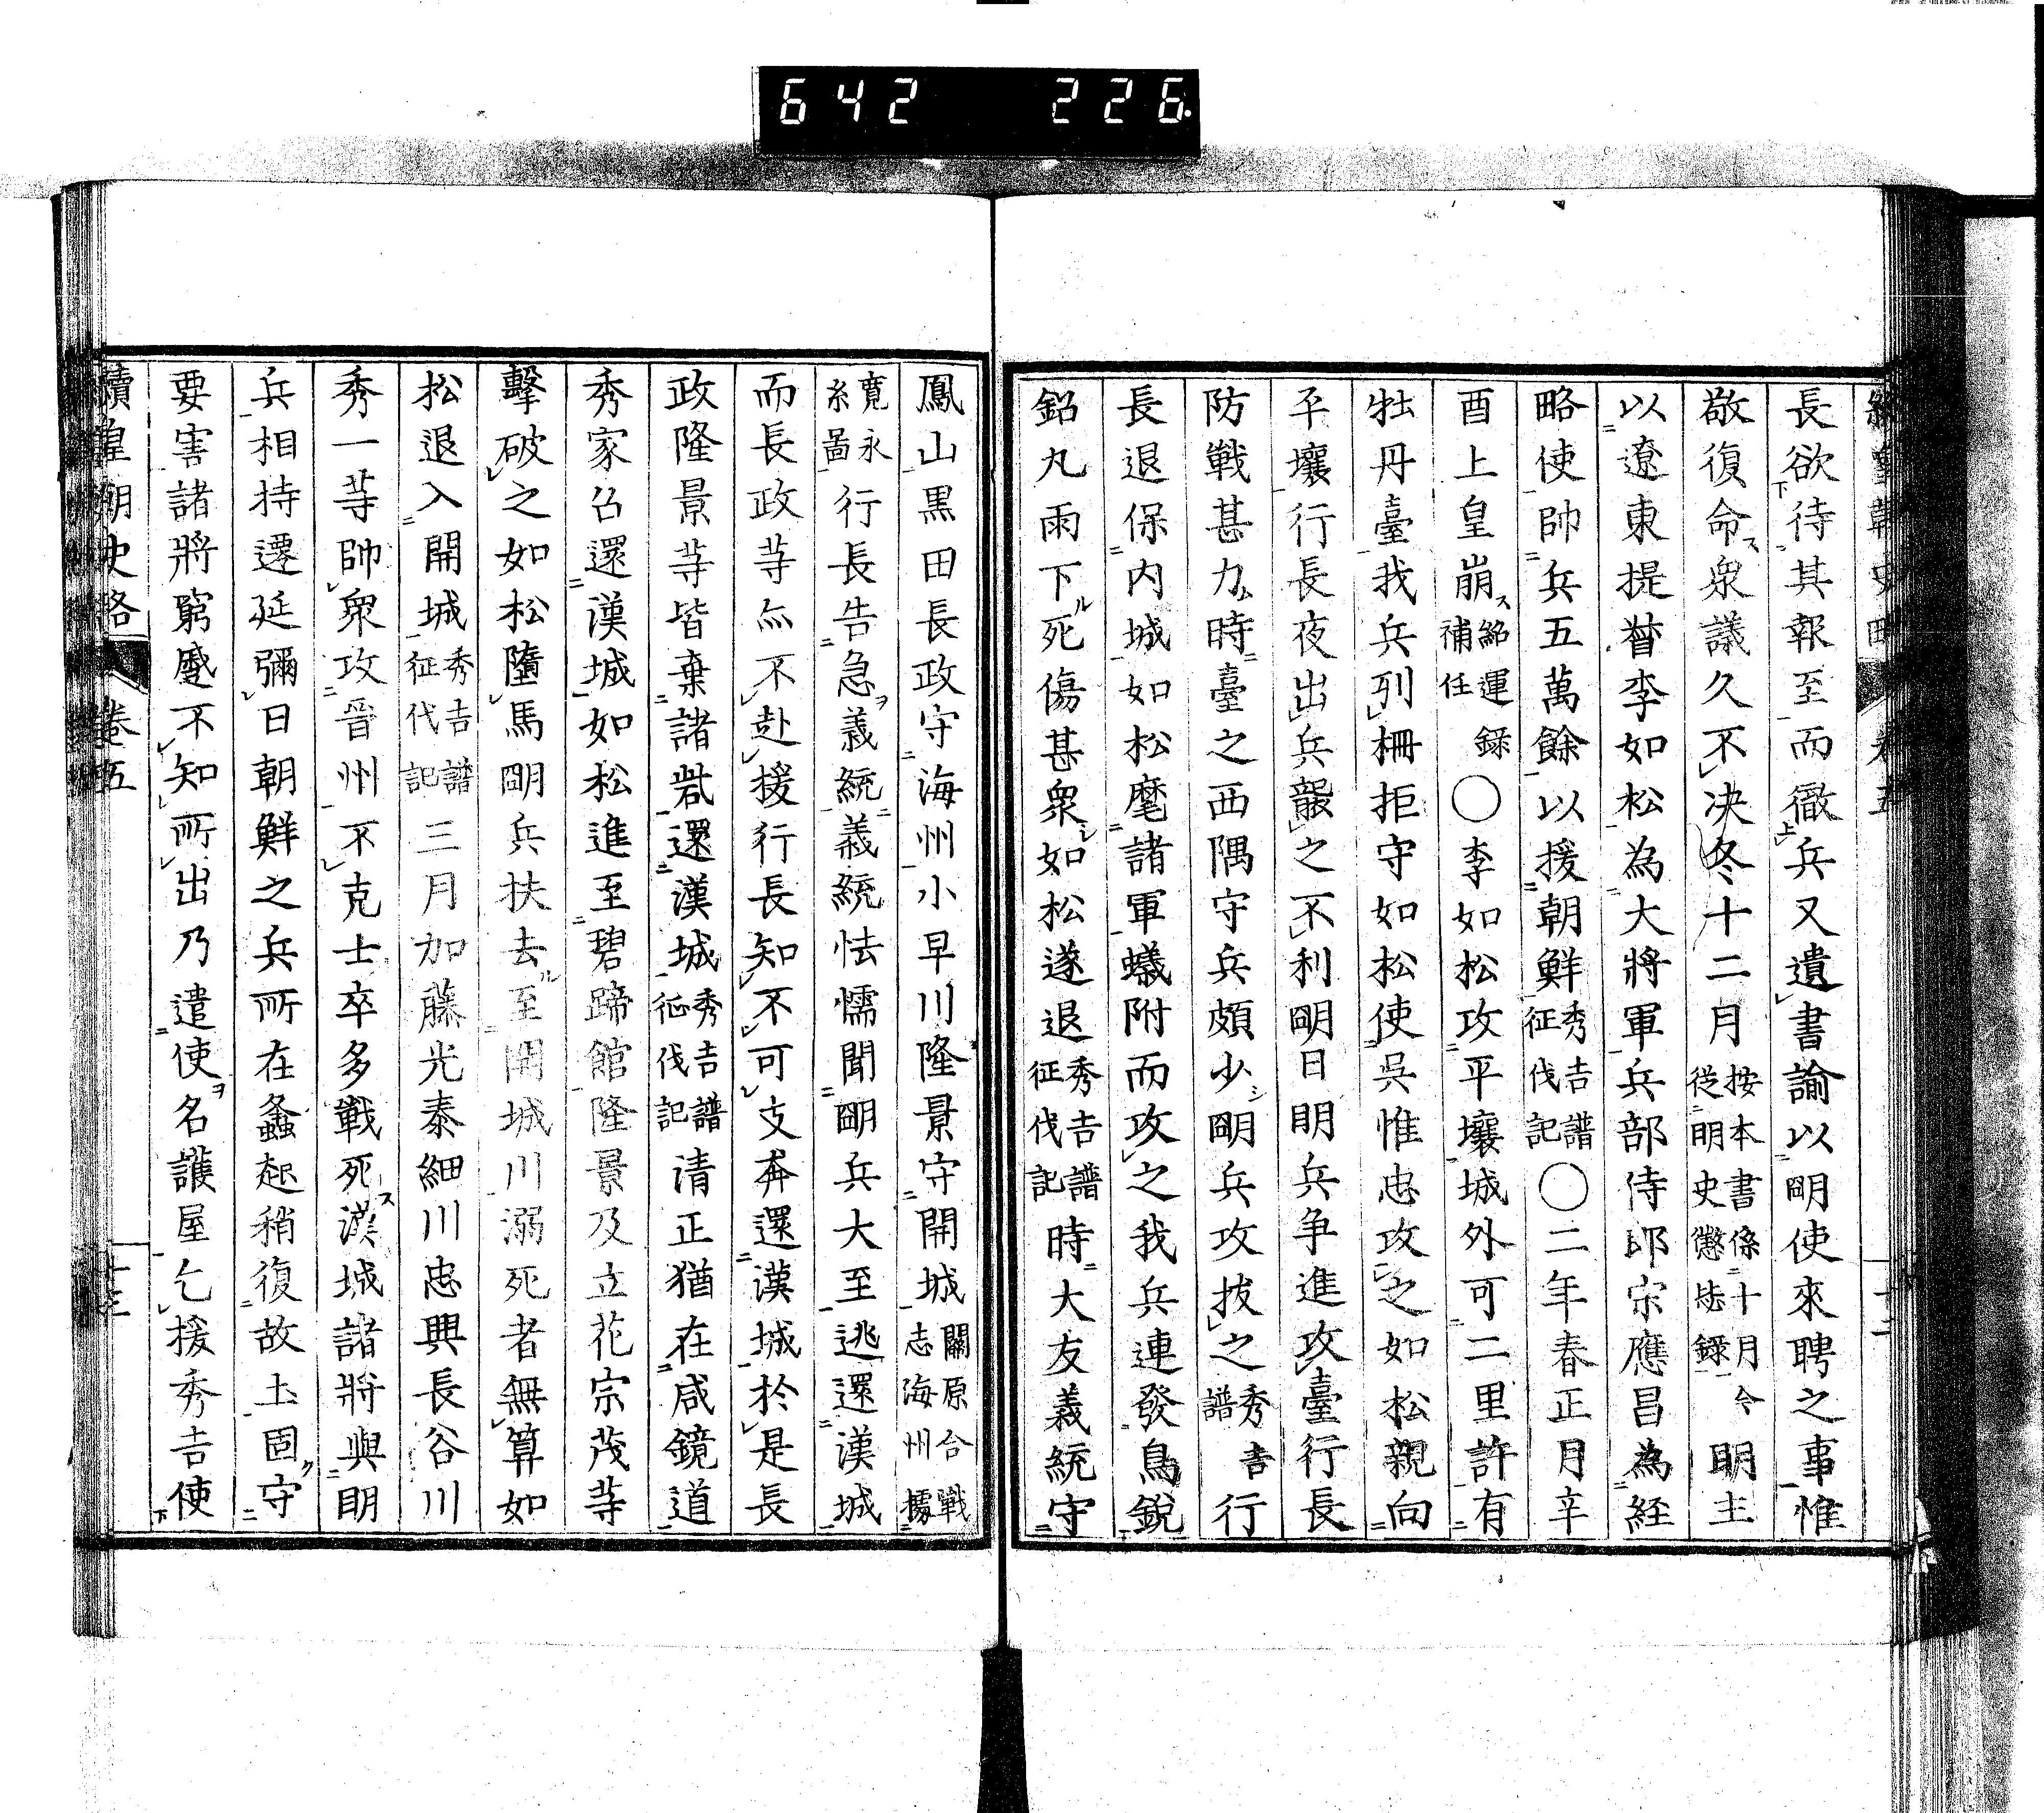 642 226
續皇朝史略 卷五 十二
長欲待其報至而徹兵又遺書諭以明使來聘之事惟
敬復命衆議久不决冬十二月按本書係十月今從明史懲毖錄明主
以遼東提督李如松為大將軍兵部侍郎宗應昌為経
略使帥兵五萬餘以援朝鮮秀吉譜征伐記〇二年春正月辛
酉上皇崩紹運録補任〇李如松攻平壤城外可二里許有
牡丹臺我兵列柵拒守如松使吳惟忠攻之如松親向
平壤行長夜出兵襲之不利明日明兵争進攻臺行長
防戰甚力時臺之西隅守兵頗少明兵攻拔之秀吉譜行
長退保内城如松麾諸軍蟻附而攻之我兵連發鳥銃
鉛丸雨下死傷甚衆如松遂退秀吉譜征伐記時大友義統守
鳳山黒田長政守海州小早川隆景守開城關原合戰志海州據
寛永系圖行長告急義統義統怯懦聞明兵大至逃還漢城
而長政等亦不赴援行長知不可支奔還漢城於是長
政隆景等皆棄諸砦還漢城秀吉譜征伐記清正猶在咸鏡道
秀家召還漢城如松進至碧蹄館隆景及立花宗茂等
擊破之如松墮馬明兵扶去至開城川溺死者無算如
松退入開城秀吉譜征伐記三月加藤光泰細川忠興長谷川
秀一等帥衆攻晉州不克士卒多戰死漢城諸將與明
兵相持遷延彌日朝鮮之兵所在蠭起稍復故土固守
要害諸將窮蹙不知所出乃遣使名護屋乞援秀吉使
續皇朝史略 卷五 十三